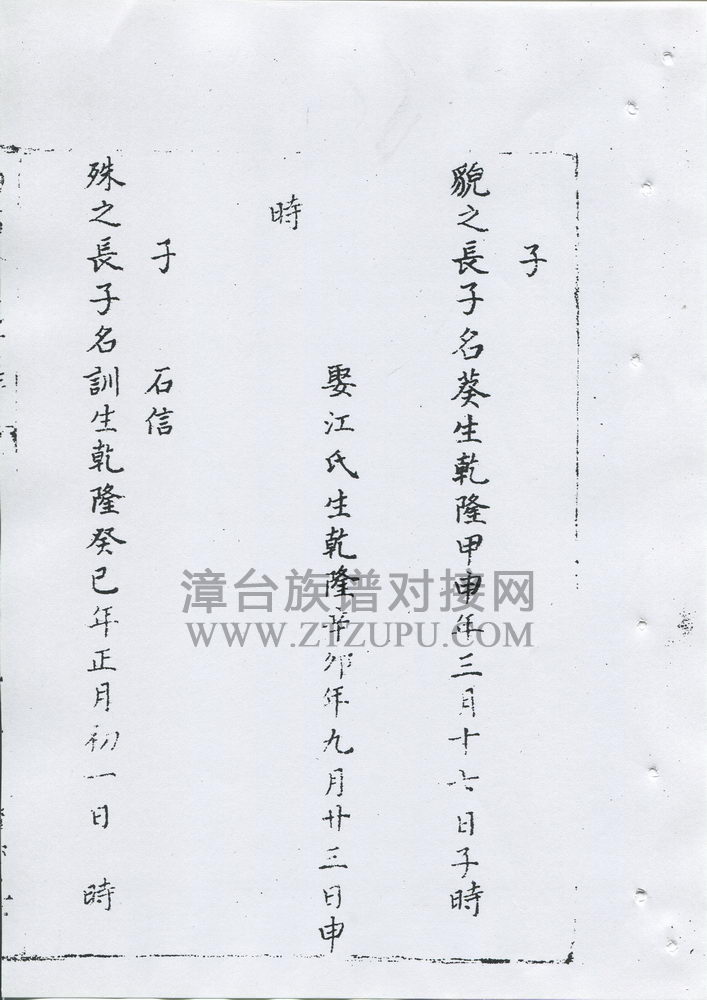 子
貌之長子名葵生乾隆甲申年三月十六日子時
娶江氏生乾隆辛卯年九月廿三日申
時
子 石信
殊之長子名訓生乾隆癸巳年正月初一日 時
漳台族谱对接网
WWW.ZTZUPU.COM